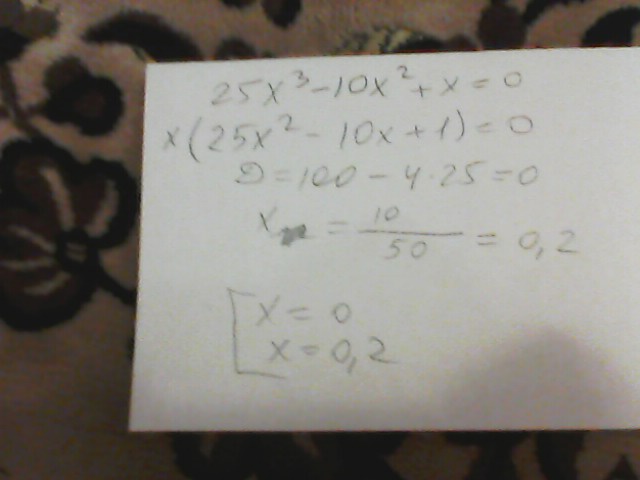 25x³-10x²+x=0
x(25x²-10x+1)=0
D=100-4·25=0
x = 10/50 = 0,2
[x=0
x=0,2